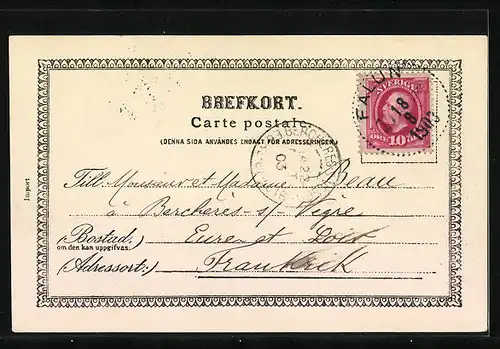 BREFKORT.
Carte postale.
(DENNA SIDA ANVÄNDES ENDAST FÖR ADRESSERINGEN.)
SVERIGE
ÖRE 10 ÖRE
FALUN
18
8
1903
BERCHÈRES
03
Till Monsieur et Madame Beau
à Berchères-s/-Vègre
(Bostad)
om den kan uppgifvas.
Eure et Loir
(Adressort:)
Frankrik
Import